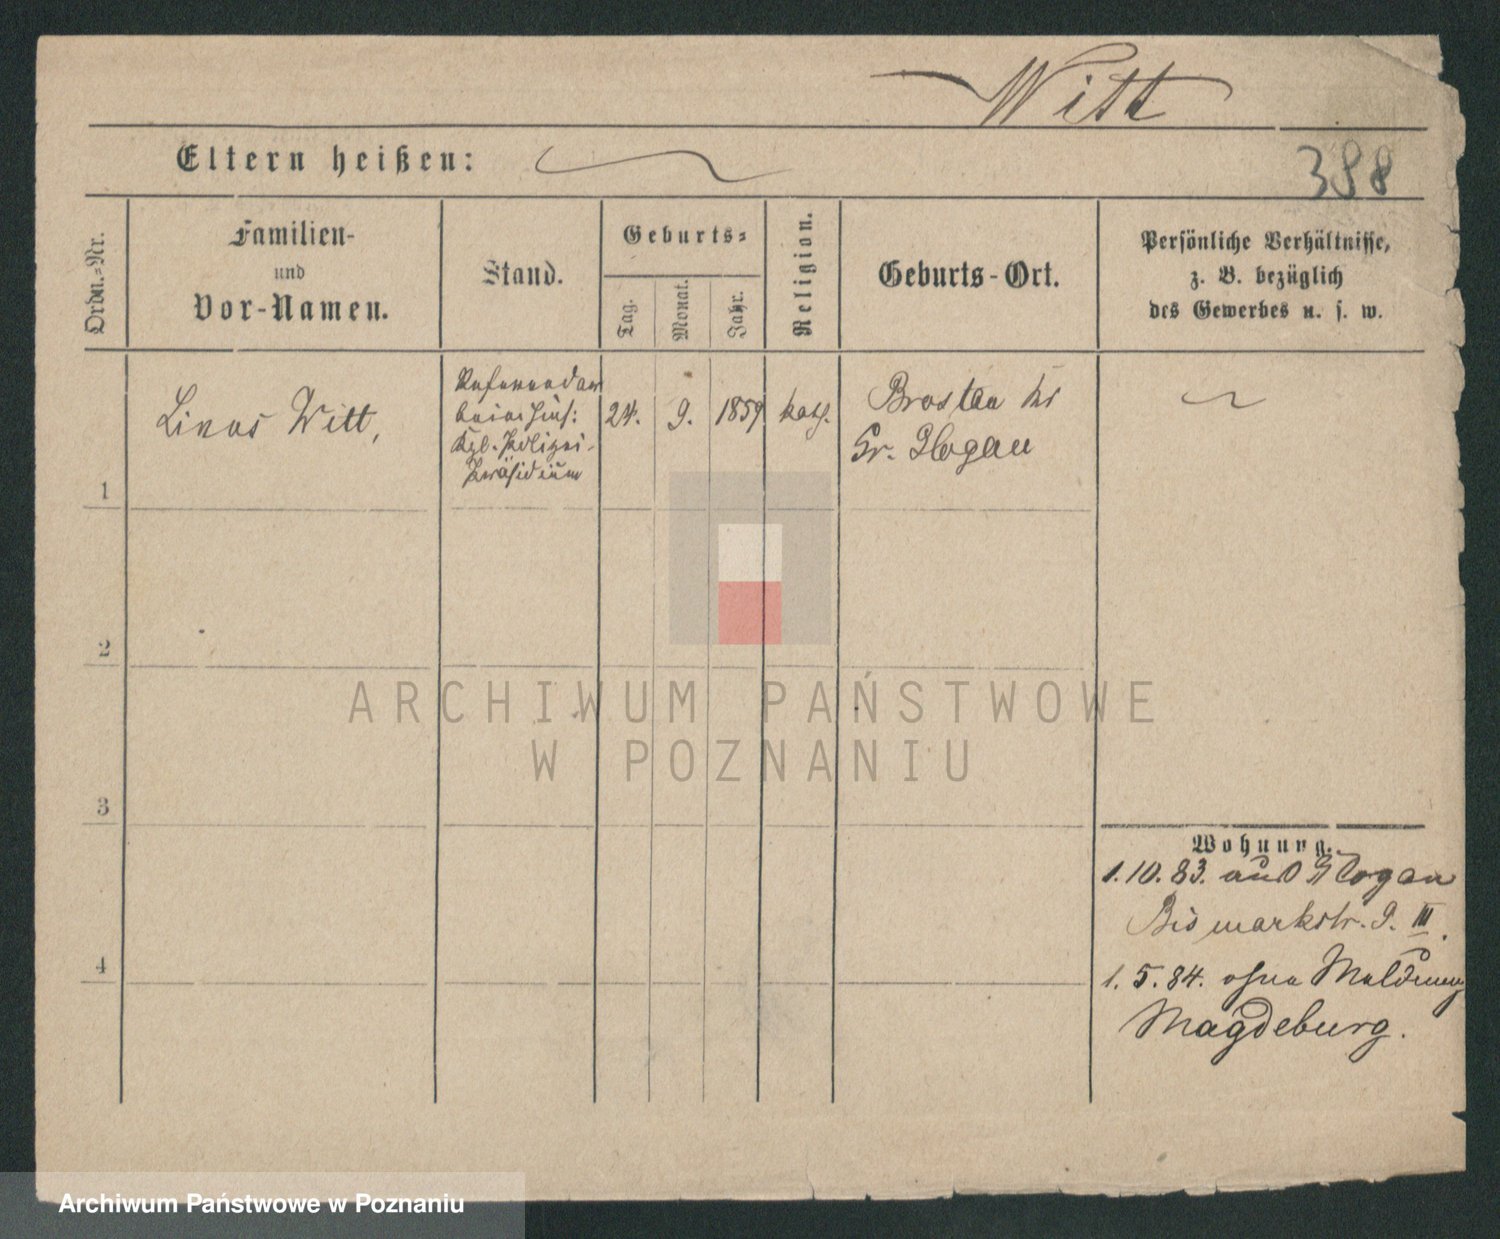 Witt
Eltern heißen:
388
Ordn.-Nr.
Familien-
und
Vor-Namen.
Stand.
Geburts-
Tag.
Monat.
Jahr.
Religion.
Geburts-Ort.
Persönliche Verhältnisse,
z. B. bezüglich
des Gewerbes u. s. w.
1
Linus Witt,
Referendar
beim hies:
Kgl. Polizei-
Präsidium
24.
9.
1859
kath.
Brostau Krs
Gr. Glogau
2
3
4
Wohnung.
1.10.83. aus Glogau
Bismarkstr. 9. III.
1.5.84. ohne Meldung
Magdeburg.
ARCHIWUM PAŃSTWOWE
W POZNANIU
Archiwum Państwowe w Poznaniu